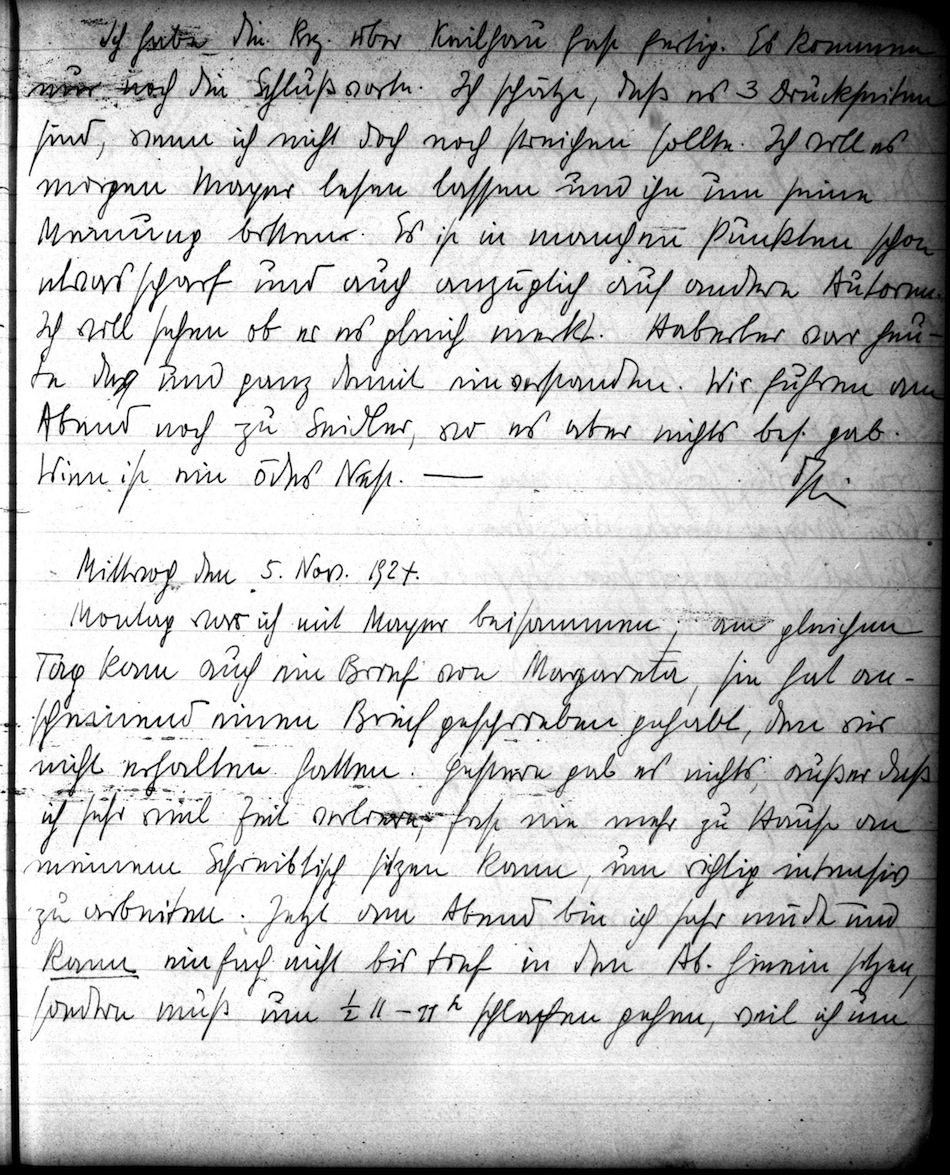 Ich habe die Rez. über Keilhau fast fertig. Es kommen
nur noch die Schlußworte. Ich schätze, daß es 3 Druckseiten
sind, wenn ich nicht doch noch streichen sollte. Ich will es
morgen Mayer lesen lassen und ihn um seine
Meinung bitten. Es ist in manchen Punkten schon
etwas scharf und auch anzüglich auf andere Autoren.
Ich will sehen ob er es gleich merkt. Haberler war heu-
te da und ganz damit einverstanden. Wir fuhren am
Abend noch zu Seidler, wo es aber nichts bes. gab.
Wien ist ein ödes Nest. —
Mittwoch den 5. Nov. 1924.
Montag war ich mit Mayer beisammen, am gleichen
Tag kam auch ein Brief von Margareta, sie hat an-
scheinend einen Brief geschrieben gehabt, den wir
nicht erhalten hatten. Gestern gab es nichts, außer daß
ich sehr viel Zeit verliere, fast nie mehr zu Hause an
meinem Schreibtisch sitzen kann, um richtig intensiv
zu arbeiten. Jetzt am Abend bin ich sehr müde und
kann einfach nicht bis tief in den Ab. hinein sitzen,
sondern muß um ½ 11 – 11 h schlafen gehen, weil ich um